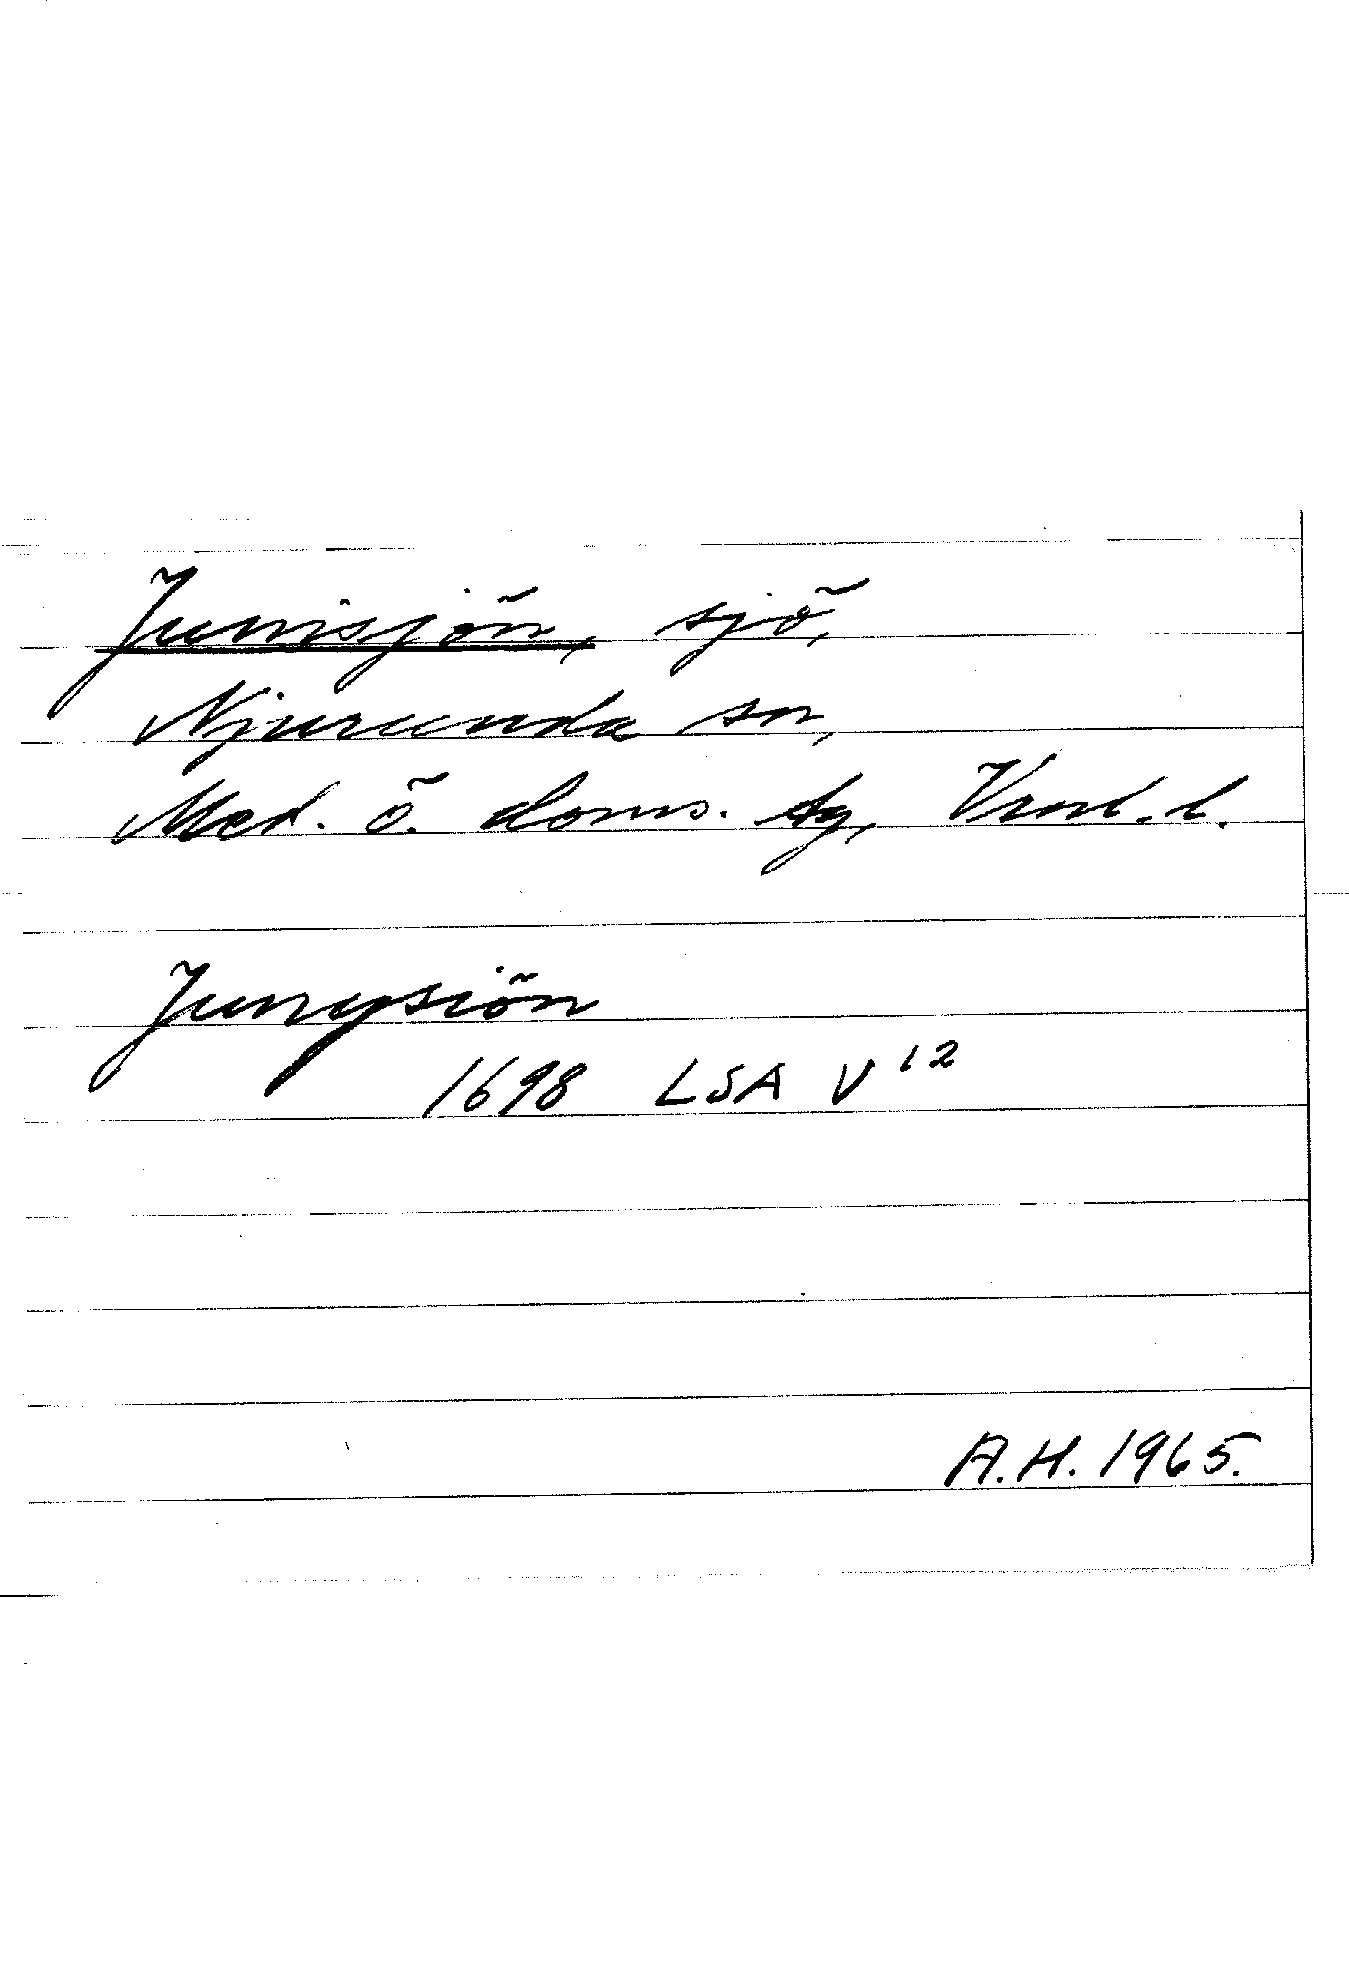 Junisjön, sjö,
Njurunda sn,
Med. ö. doms. tg, Vnl. l.
Junysiön
1698 LSA V 12
A.H. 1965.